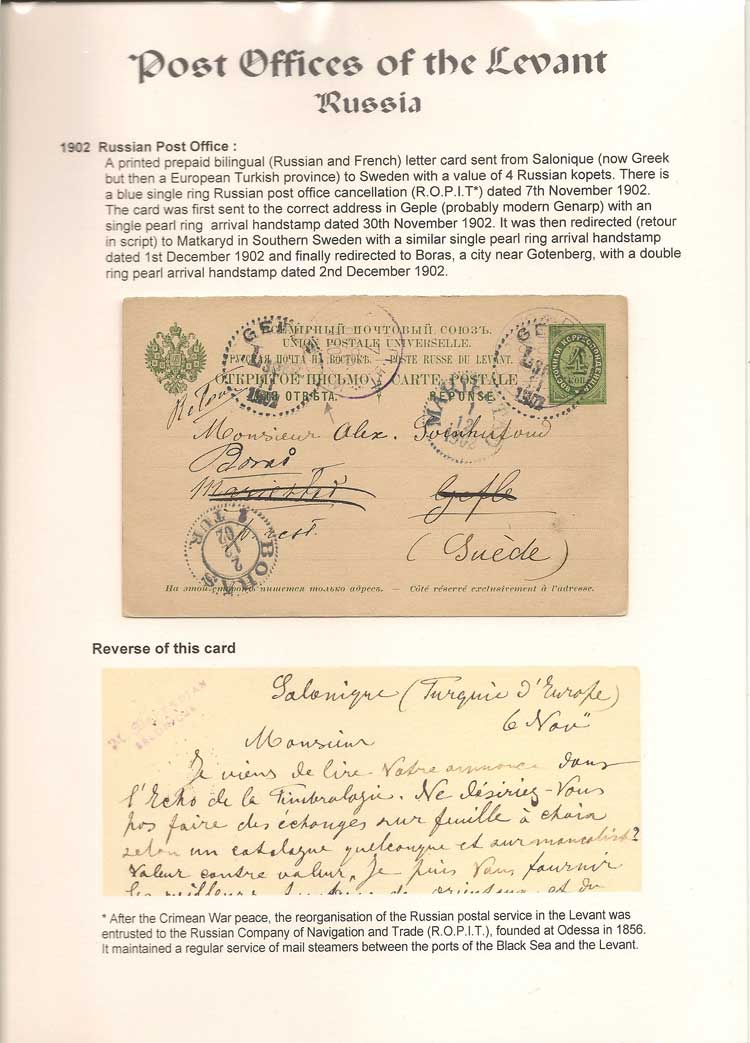 Post Offices of the Levant
Russia
1902 Russian Post Office :
A printed prepaid bilingual (Russian and French) letter card sent from Salonique (now Greek
but then a European Turkish province) to Sweden with a value of 4 Russian kopets. There is
a blue single ring Russian post office cancellation (R.O.P.I.T*) dated 7th November 1902.
The card was first sent to the correct address in Geple (probably modern Genarp) with an
single pearl ring arrival handstamp dated 30th November 1902. It was then redirected (retour
in script) to Matkaryd in Southern Sweden with a similar single pearl ring arrival handstamp
dated 1st December 1902 and finally redirected to Boras, a city near Gotenberg, with a double
ring pearl arrival handstamp dated 2nd December 1902.
ВСЕМІРНЫЙ ПОЧТОВЫЙ СОЮЗЪ.
UNION POSTALE UNIVERSELLE.
РУССКАЯ ПОЧТА НА ВОСТОКѢ. — POSTE RUSSE DU LEVANT.
ОТКРЫТОЕ ПИСЬМО CARTE POSTALE
ДЛЯ ОТВѢТА. RÉPONSE.
ВОСТОЧНАЯ КОРРЕСПОНДЕНЦІЯ
4
КОП.
1902
1902
Retour
Monsieur Alex.
Borås
Gefle
(Suède)
BORÅS
1 TUR
2
12
02
На этой сторонѣ пишется только адресъ. — Côté réservé exclusivement à l'adresse.
Reverse of this card
Salonique (Turquie d'Europe)
6 Nov
Monsieur
Je viens de lire Votre annonce dans
l'Echo de la Timbrologie. Ne désiriez-Vous
pas faire des échanges sur feuille à choix
selon un catalogue quelconque et sur mancoliste?
Valeur contre valeur. Je puis Vous fournir
les meilleurs et du
* After the Crimean War peace, the reorganisation of the Russian postal service in the Levant was
entrusted to the Russian Company of Navigation and Trade (R.O.P.I.T.), founded at Odessa in 1856.
It maintained a regular service of mail steamers between the ports of the Black Sea and the Levant.